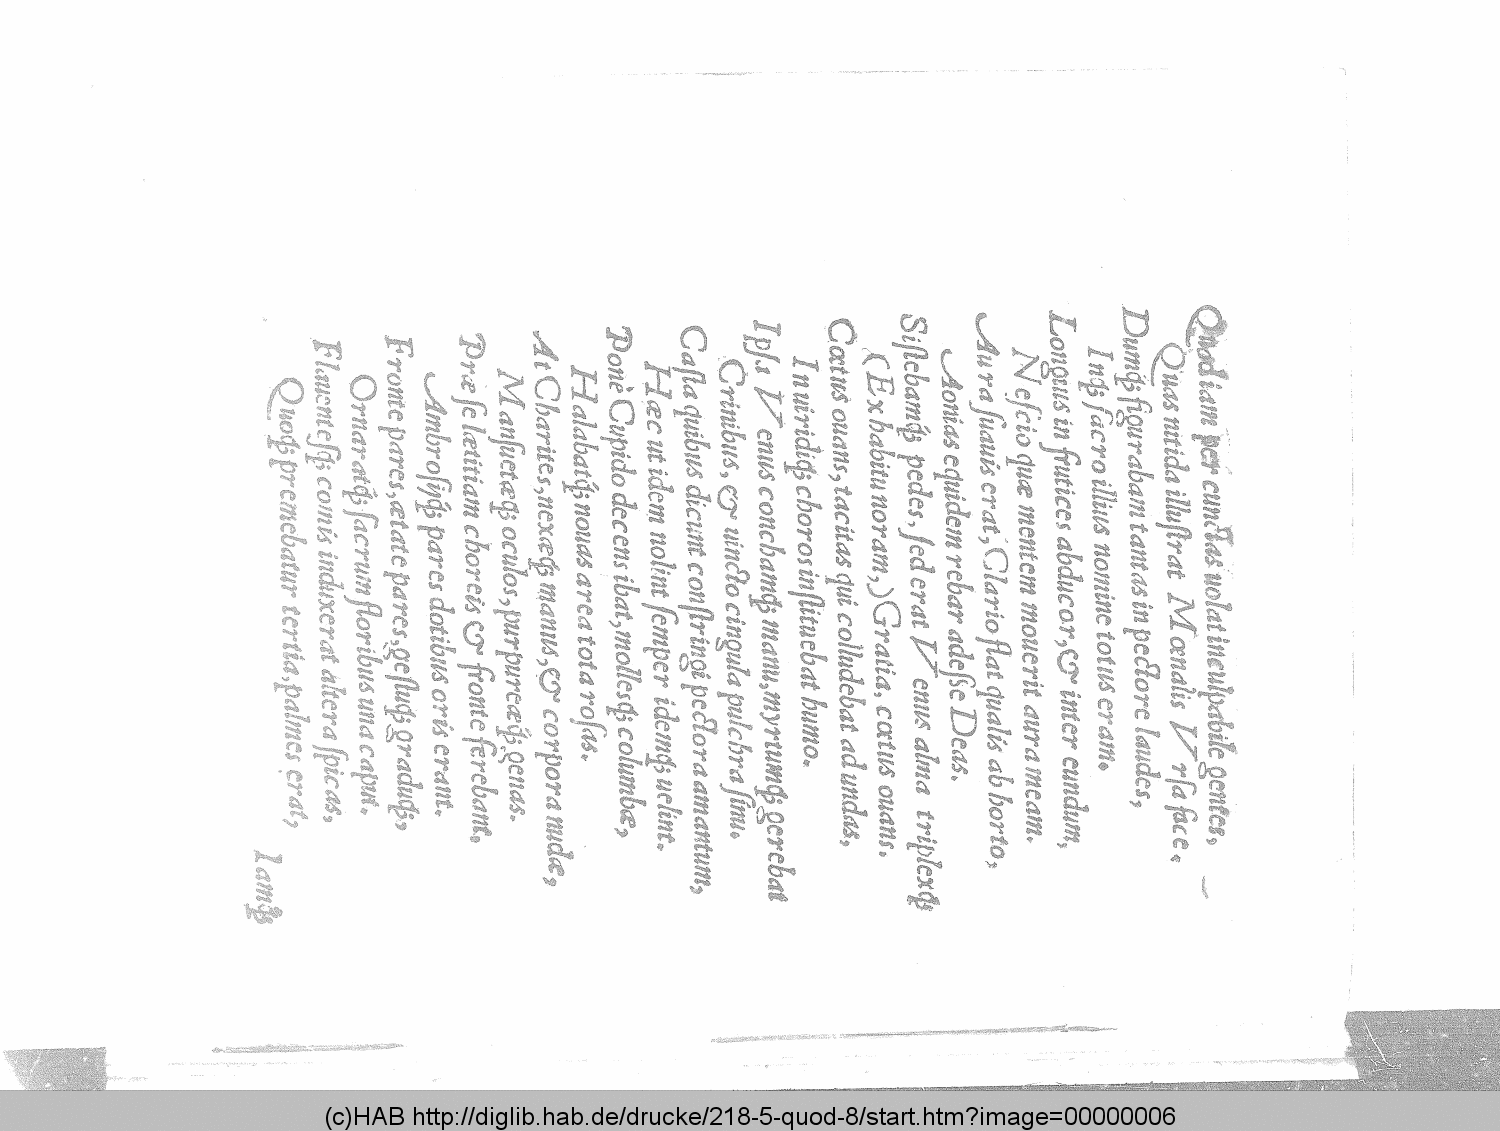 Quod iam per cunctas uolat inculpabile gentes,
Quas nitida illuſtrat Mœnalis Vrſa face.
Dumq́ꝫ figurabam tantas in pectore laudes,
Inqꝫ ſacro illius nomine totus eram.
Longius in frutices abducor, & inter eundum,
Neſcio quæ mentem mouerit aura meam.
Aura ſuauis erat, Clario flat qualis ab horto,
Aonias equidem rebar adeſſe Deas.
Siſtebamq́ꝫ pedes, ſed erat Venus alma triplexqꝫ
(Ex habitu noram,) Gratia, cœtus ouans.
Cœtus ouans, tacitas qui colludebat ad undas,
In uiridiqꝫ choros inſtituebat humo.
Ipſa Venus conchamqꝫ manu, myrtumqꝫ gerebat
Crinibus, & uincto cingula pulchra ſinu.
Caſta quibus dicunt conſtringi pectora amantum,
Hæc ut idem nolint ſemper idemqꝫ uelint.
Ponè Cupido decens ibat, mollesqꝫ columbæ,
Halabatq́ꝫ nouas area tota roſas.
At Charites, nexæqꝫ manus, & corpora nudæ,
Manſuetæqꝫ oculos, purpureæq́ꝫ genas.
Præ ſe lætitiam choreis & fronte ferebant,
Ambroſijq́ꝫ pares dotibus oris erant.
Fronte pares, ætate pares, geſtuqꝫ graduqꝫ,
Ornaratqꝫ ſacrum floribus una caput.
Flauenteſqꝫ comis induxerat altera ſpicas,
Quoqꝫ premebatur tertia, palmes erat,
Iamqꝫ
(c)HAB http://diglib.hab.de/drucke/218-5-quod-8/start.htm?image=00000006